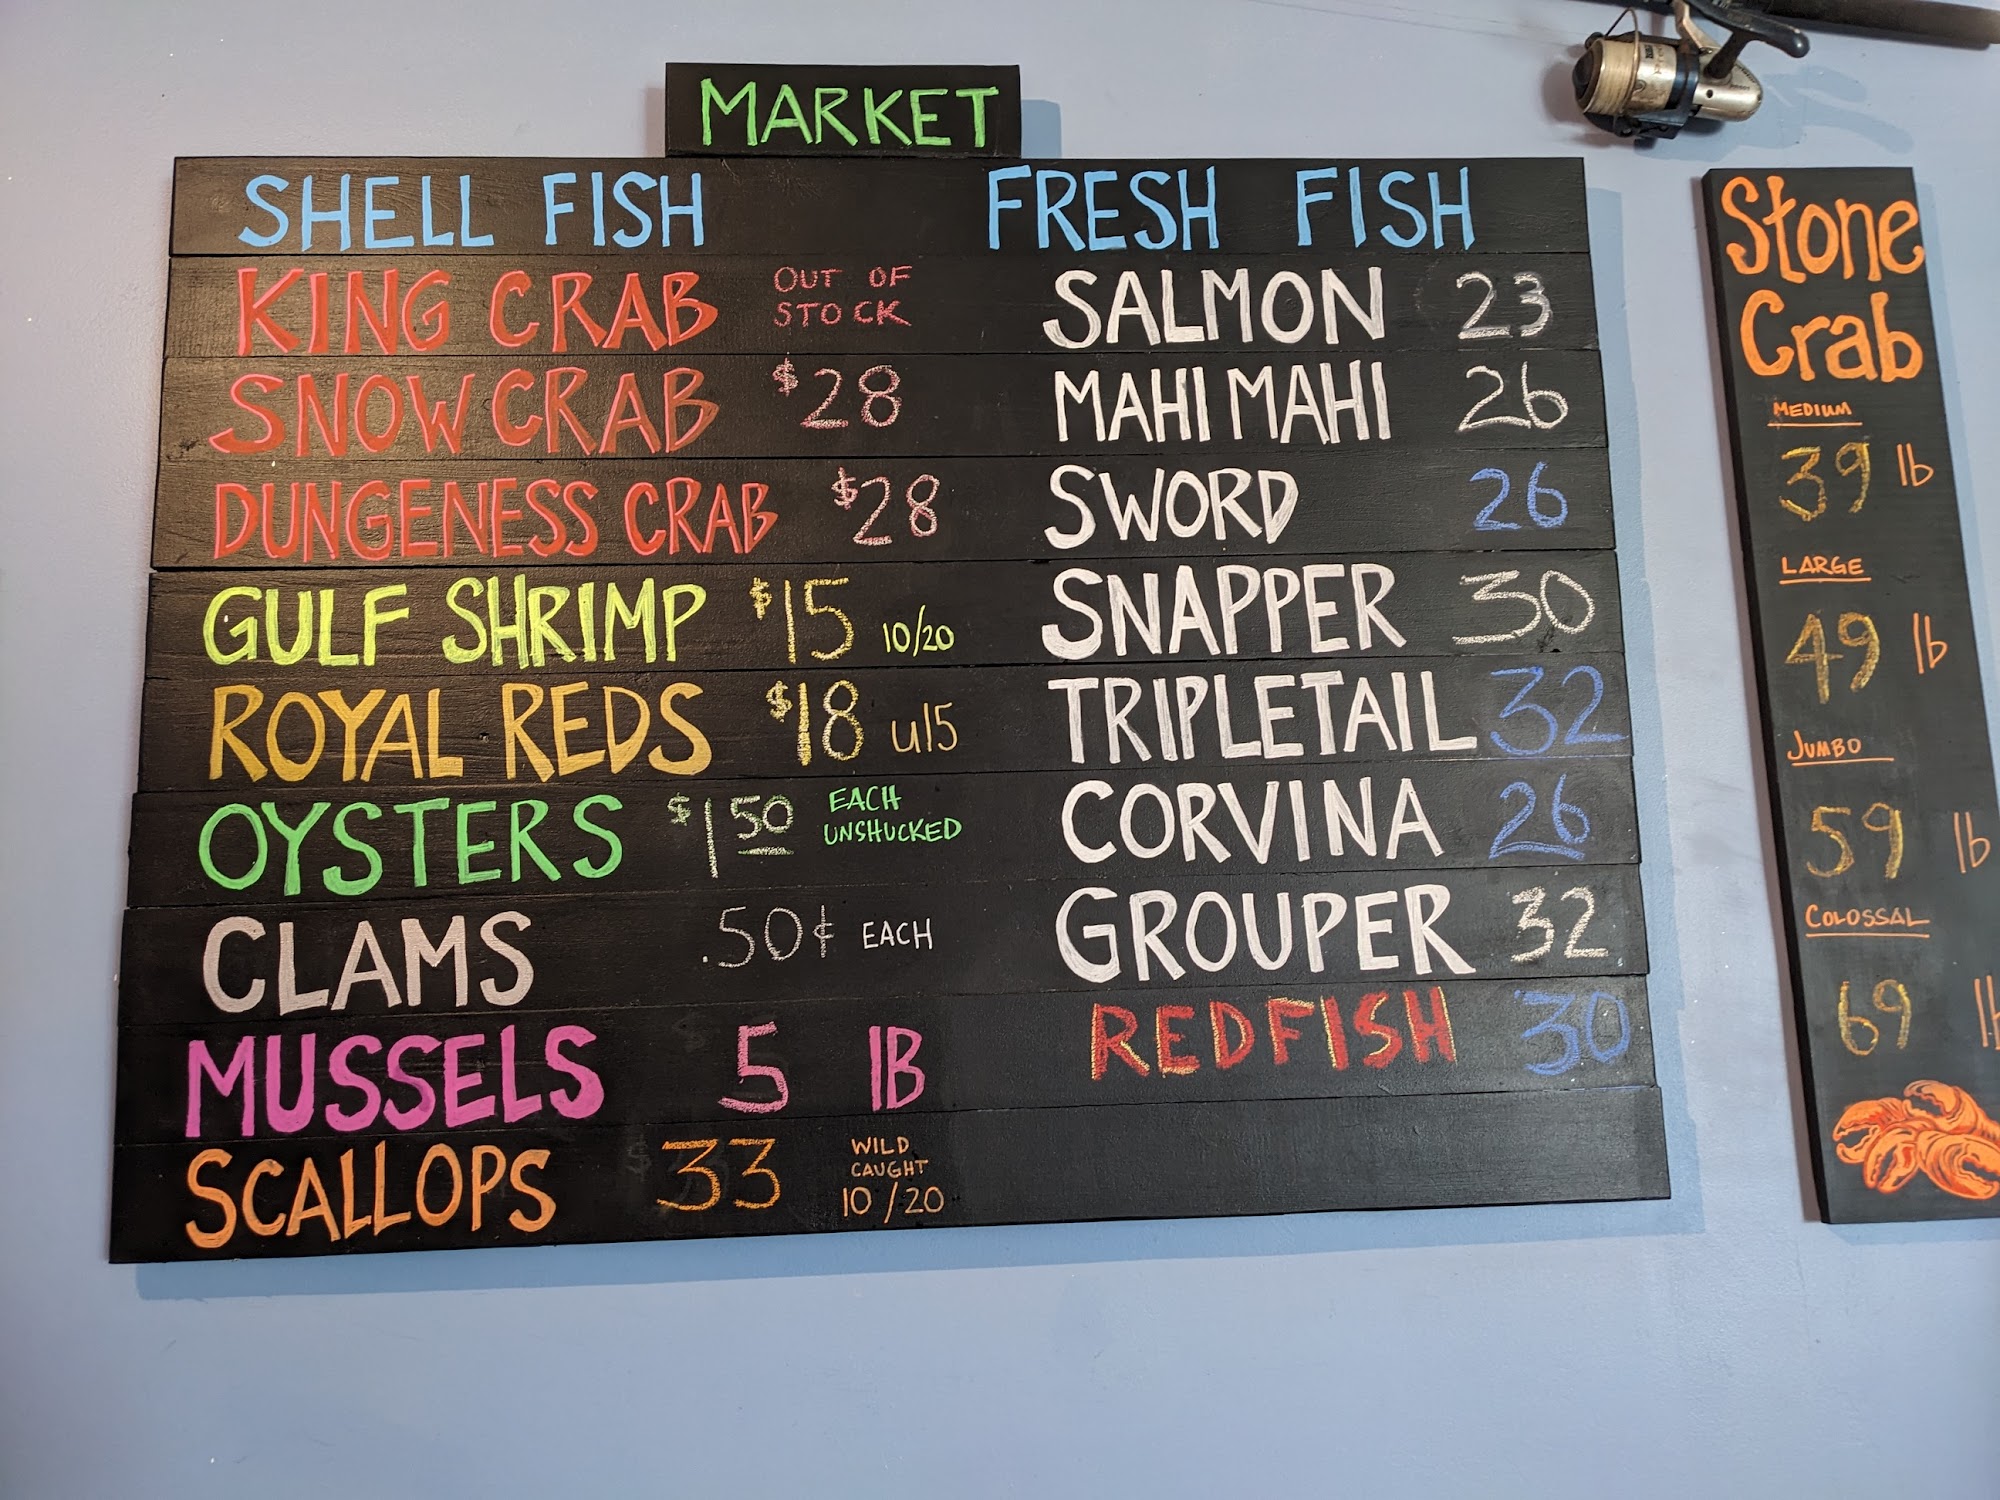 MARKET
SHELL FISH
KING CRAB OUT OF
STOCK
SNOW CRAB $28
DUNGENESS CRAB $28
GULF SHRIMP $15 10/20
ROYAL REDS $18 u15
OYSTERS $1 50 EACH
UNSHUCKED
CLAMS .50¢ EACH
MUSSELS 5 lB
SCALLOPS 33 WILD
CAUGHT
10/20
FRESH FISH
SALMON 23
MAHI MAHI 26
SWORD 26
SNAPPER 30
TRIPLETAIL 32
CORVINA 26
GROUPER 32
REDFISH 30
Stone
Crab
MEDIUM
39 lb
LARGE
49 lb
JUMBO
59 lb
COLOSSAL
69 lb